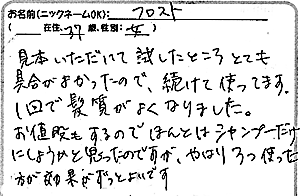 お名前(ニックネームOK): フロスト
( 在住、37歳、性別: 女 )
見本いただいて試したところとても
具合がよかったので、続けて使ってます。
1回で髪質がよくなりました。
お値段もするのでほんとはシャンプーだけ
にしようかと思ったのですが、やはり3つ使った
方が効果がずっとよいです